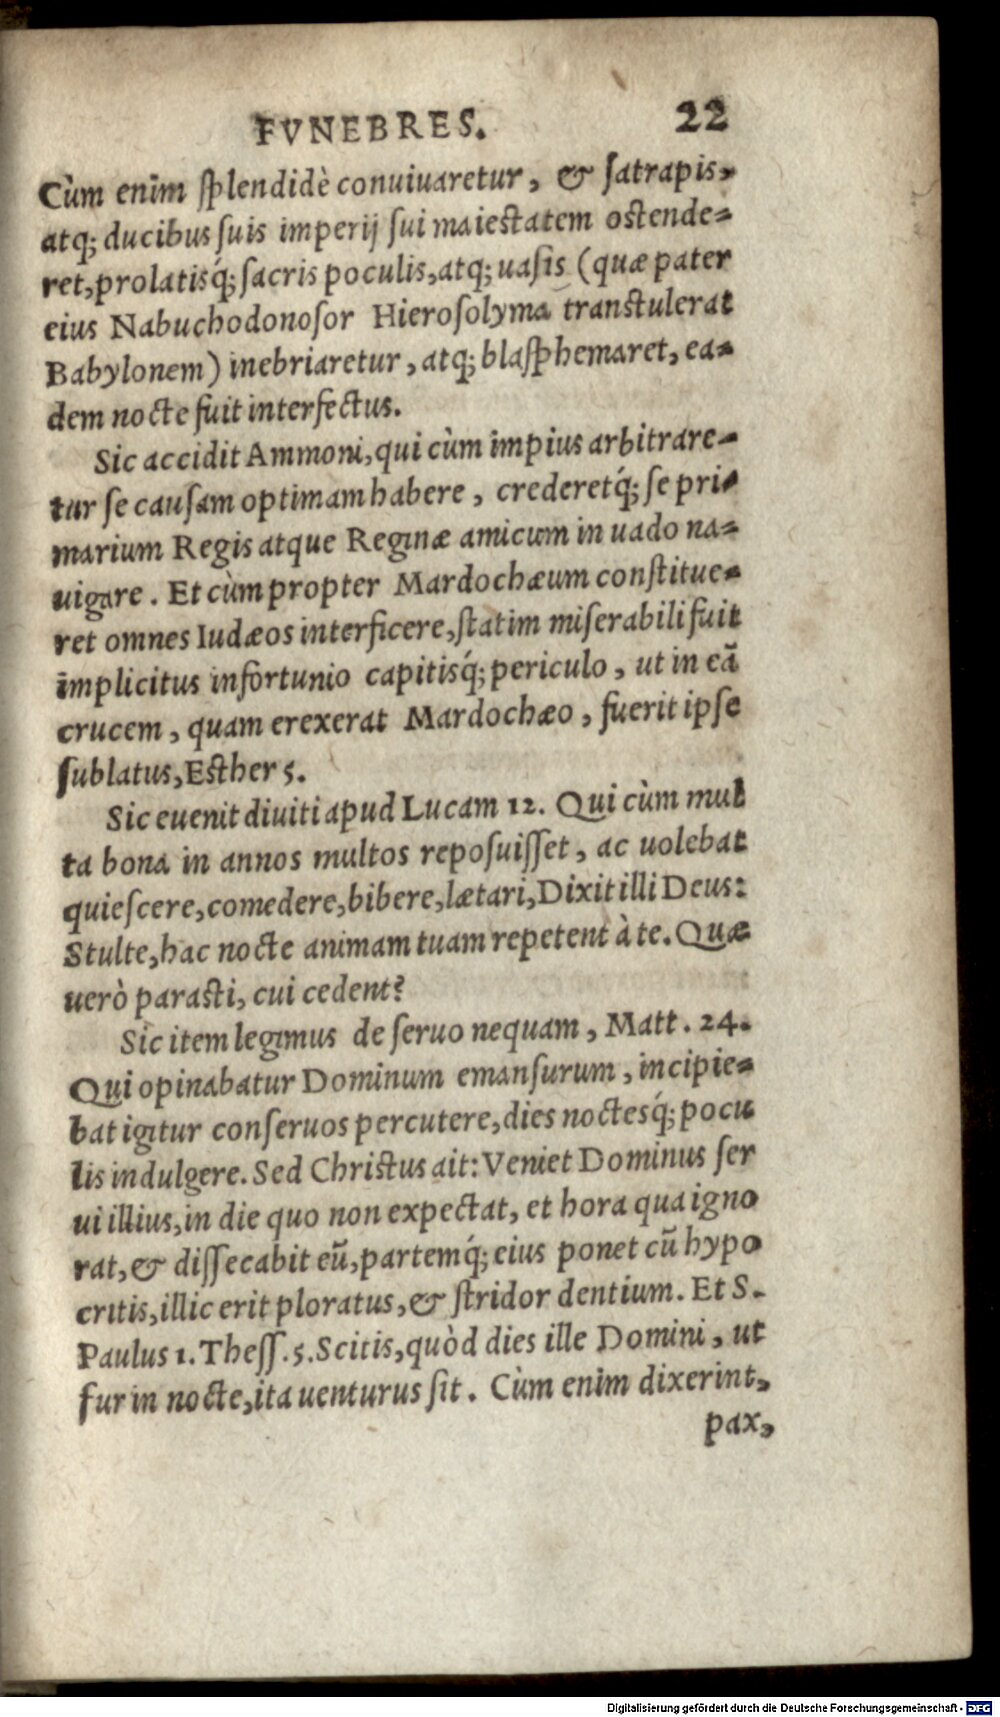 FVNEBRES. 22
Cùm enim ſplendidè conuiuaretur, & ſatrapis,
atq; ducibus ſuis imperij ſui maieſtatem oſtende-
ret, prolatisq́; ſacris poculis, atq; uaſis (quæ pater
eius Nabuchodonoſor Hieroſolyma tranſtulerat
Babylonem) inebriaretur, atq; blaſphemaret, ea-
dem nocte fuit interfectus.
Sic accidit Ammoni, qui cùm impius arbitrare-
tur ſe cauſam optimam habere, crederetq́; ſe pri-
marium Regis atque Reginæ amicum in uado na-
uigare. Et cùm propter Mardochæum conſtitue-
ret omnes Iudæos interficere, ſtatim miſerabili fuit
implicitus infortunio capitisq́; periculo, ut in eã
crucem, quam erexerat Mardochæo, fuerit ipſe
ſublatus, Eſther 5.
Sic euenit diuiti apud Lucam 12. Qui cùm mul
ta bona in annos multos repoſuiſſet, ac uolebat
quieſcere, comedere, bibere, lætari, Dixit illi Deus:
Stulte, hac nocte animam tuam repetent à te. Quæ
uerò paraſti, cui cedent?
Sic item legimus de ſeruo nequam, Matt. 24.
Qui opinabatur Dominum emanſurum, incipie-
bat igitur conſeruos percutere, dies noctesq́; pocu
lis indulgere. Sed Chriſtus ait: Veniet Dominus ſer
ui illius, in die quo non expectat, et hora qua igno
rat, & diſſecabit eũ, partemq́; eius ponet cũ hypo
critis, illic erit ploratus, & ſtridor dentium. Et S.
Paulus 1. Theſſ. 5. Scitis, quòd dies ille Domini, ut
fur in nocte, ita uenturus ſit. Cùm enim dixerint,
pax,
Digitalisierung gefördert durch die Deutsche Forschungsgemeinschaft - DFG